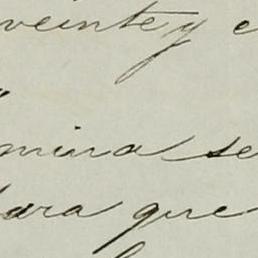 veinte y
mina se
para que